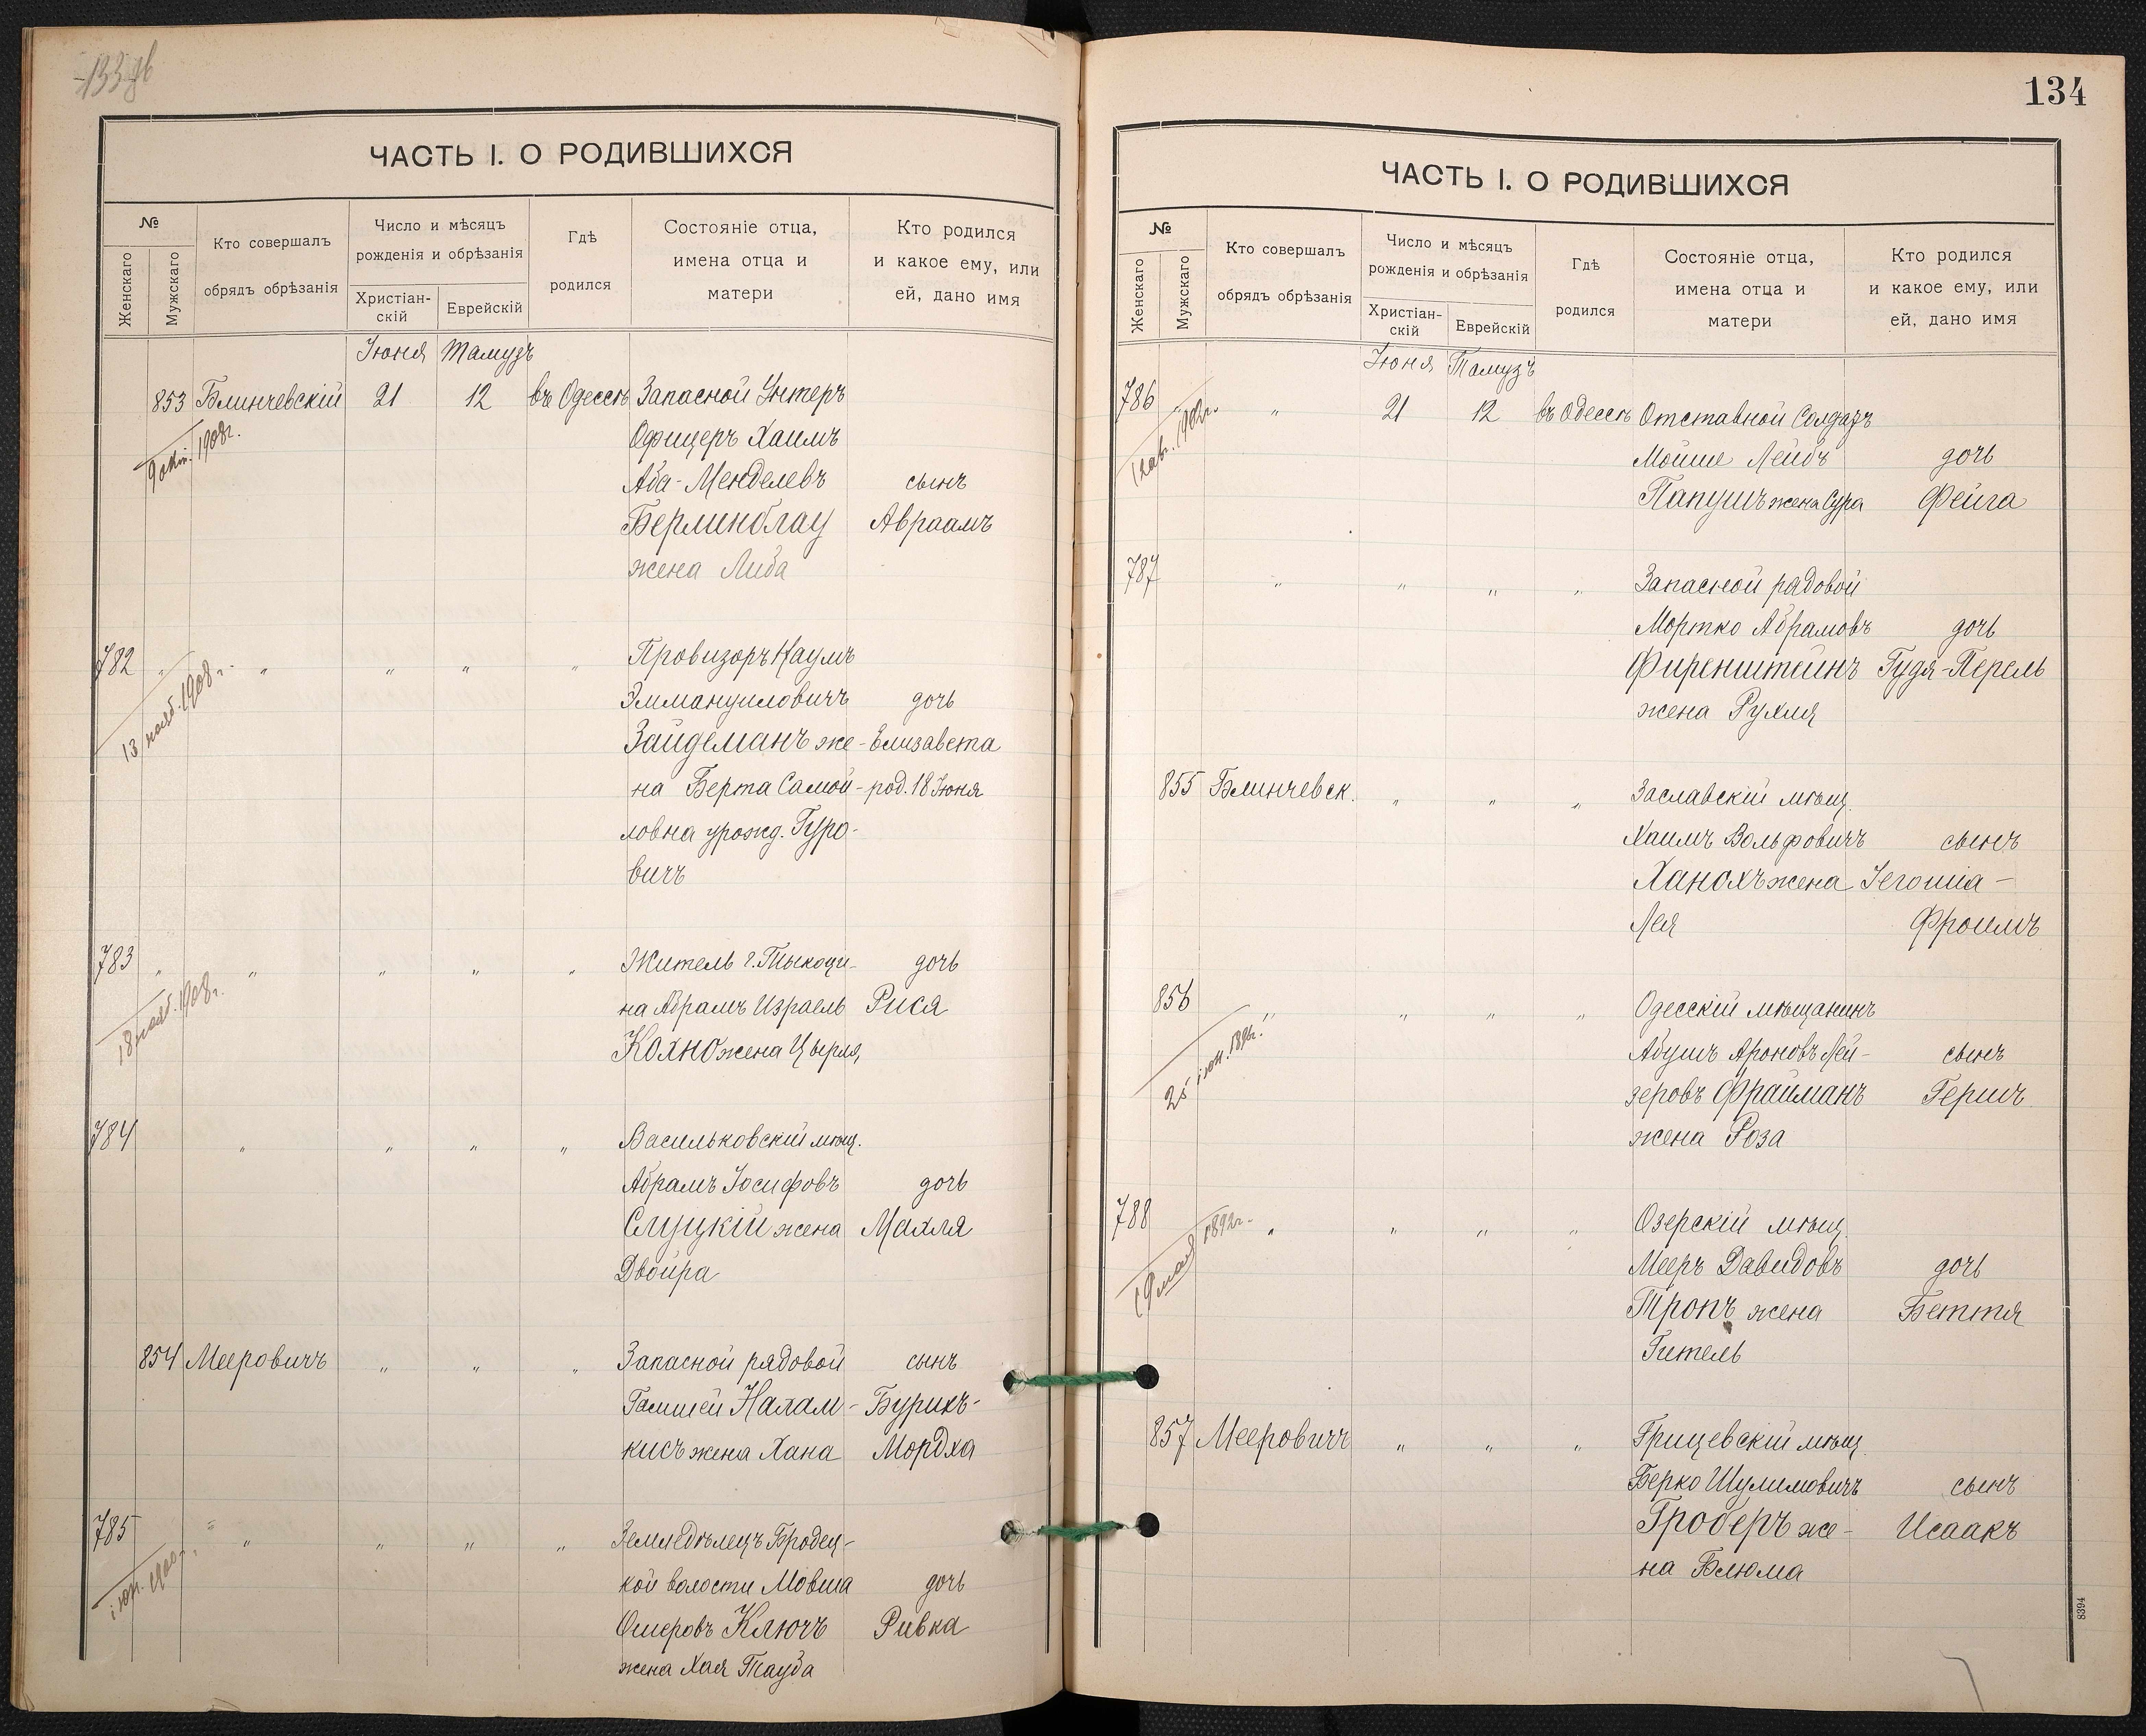 133 об
ЧАСТЬ I. О РОДИВШИХСЯ
№
Женскаго
Мужскаго
Кто совершалъ
обрядъ обрѣзанія
Число и мѣсяцъ
рожденія и обрѣзанія
Христіан-
скій
Еврейскій
Гдѣ
родился
Состояніе отца,
имена отца и
матери
Кто родился
и какое ему, или
ей, дано имя
Іюня Тамузъ
853 Блинчевскій 21 12 въ Одессѣ Запасной Унтеръ
9 окт. 1908г.
Офицеръ Хаимъ
Аба-Менделевъ сынъ
Берлинблау Авраамъ
жена Либа
782 „ „ „ „ „ Провизоръ Наумъ
13 нояб. 1908г.
Эммануиловичъ дочь
Зайдеманъ же- Елизавета
на Берта Самой- род. 18 Іюня
ловна урожд. Гуро-
вичъ
783 „ „ „ „ „ Житель г. Тыкоци- дочь
18 нояб. 1908г.
на Абрамъ Израель Рися
Кохно жена Цырля,
784 „ „ „ „ Васильковскій мѣщ.
Абрамъ Іосифовъ дочь
Слуцкій жена Махля
Двойра
854 Мееровичъ „ „ „ Запасной рядовой сынъ
Гамшей Налам- Бурихъ-
кисъ жена Хана Мордха
785 „ „ „ „ „ Земледѣлецъ Бродец-
іюн. 1900г.
кой волости Мовша дочь
Ошеровъ Ключъ Ривка
жена Хая Тауба
134
ЧАСТЬ I. О РОДИВШИХСЯ
№
Женскаго
Мужскаго
Кто совершалъ
обрядъ обрѣзанія
Число и мѣсяцъ
рожденія и обрѣзанія
Христіан-
скій
Еврейскій
Гдѣ
родился
Состояніе отца,
имена отца и
матери
Кто родился
и какое ему, или
ей, дано имя
Іюня Тамузъ
786 „ „ 21 12 въ Одессѣ Отставной Солдатъ
12 авг. 1902г.
Мойше Лейбъ дочь
Папушъ жена Сура Фейга
787 „ „ „ „ Запасной рядовой
Мортко Абрамовъ дочь
Фиренштейнъ Гудя-Перель
жена Рухля
855 Блинчевск. „ „ „ Заславскій мѣщ.
Хаимъ Вольфовичъ сынъ
Ханохъ жена Іегошіа-
Лея Фроимъ
856 „ „ „ „ Одесскій мѣщанинъ
25 іюн. 1896г.
Абушъ Ароновъ Лей- сынъ
зеровъ Фрайманъ Гершъ
жена Роза
788 „ „ „ „ Озерскій мѣщ.
19 мая 1892г.
Мееръ Давидовъ дочь
Тропъ жена Беття
Гитель
857 Мееровичъ „ „ „ Грицевскій мѣщ.
Берко Шулимовичъ сынъ
Гроберъ же- Исаакъ
на Блюма
8394